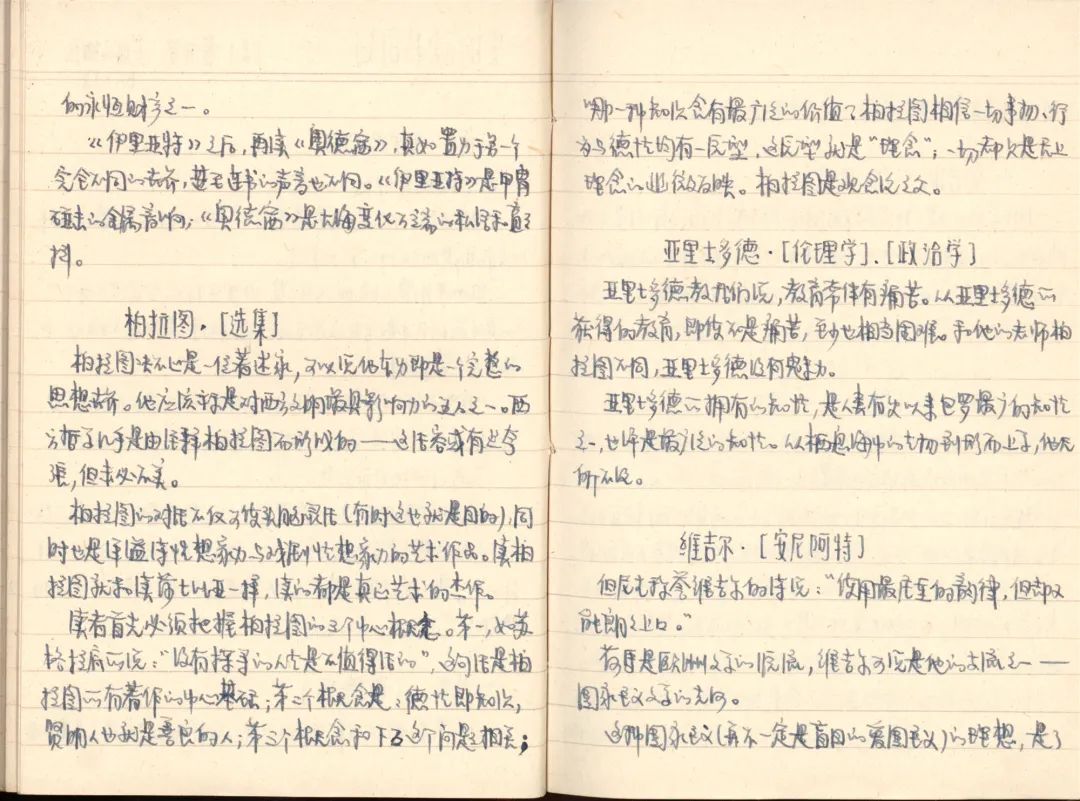 的永恒财产之一。
《伊里亚特》之后，再读《奥德赛》，真如置身于另一个
完全不同的世界，甚至连书的声音也不同。《伊里亚特》是甲胄
的金属音响；《奥德赛》是大海变化万端的私语和直
抖。
柏拉图·［选集］
柏拉图决不止是一位著述家，可以说他本身即是一个完整的
思想世界。他应该算是对西方文明最具影响力的主人之一。西
方哲学几乎是由注释柏拉图而形成的——这话容或有些夸
张，但未必不实。
柏拉图的对话不仅可使头脑灵活（有时这也就是目的），同
时也是洋溢诗性想象力与戏剧性想象力的艺术作品。读柏
拉图就和读莎士比亚一样，读的都是真正艺术的杰作。
读者首先必须把握柏拉图的三个中心概念。第一，如苏
格拉底所说："没有探寻的人生是不值得活的"，这句话是柏
拉图所有著作的中心基础；第二个概念是：德性即知识，
贤明人也就是善良的人；第三个概念和下面这个问题相关；
哪一种知识含有最广泛的价值？柏拉图相信一切事物、行
为与德性均有一原型，这原型就是"理念"；一切都只是至上
理念的些微反映。柏拉图是观念论之父。
亚里士多德·［伦理学］.［政治学］
亚里士多德教我们说，教育常伴有痛苦。从亚里士多德所
获得的教育，即使不是痛苦，至少也相当困难。和他的老师柏
拉图不同，亚里士多德没有魅力。
亚里士多德所拥有的知性，是人类有史以来包罗最广的知性
之一，也许是最广泛的知性。从栖息海中的生物到形而上学，他无
所不说。
维吉尔·［安尼阿特］
但尼生称誉维吉尔的诗说："使用最庄重的韵律，但却又
能朗朗上口。"
荷马是欧洲文学的源流，维吉尔可说是他的支流之一——
国家主义文学的先河。
这种国家主义（再不一定是盲目的爱国主义）的理想，是了